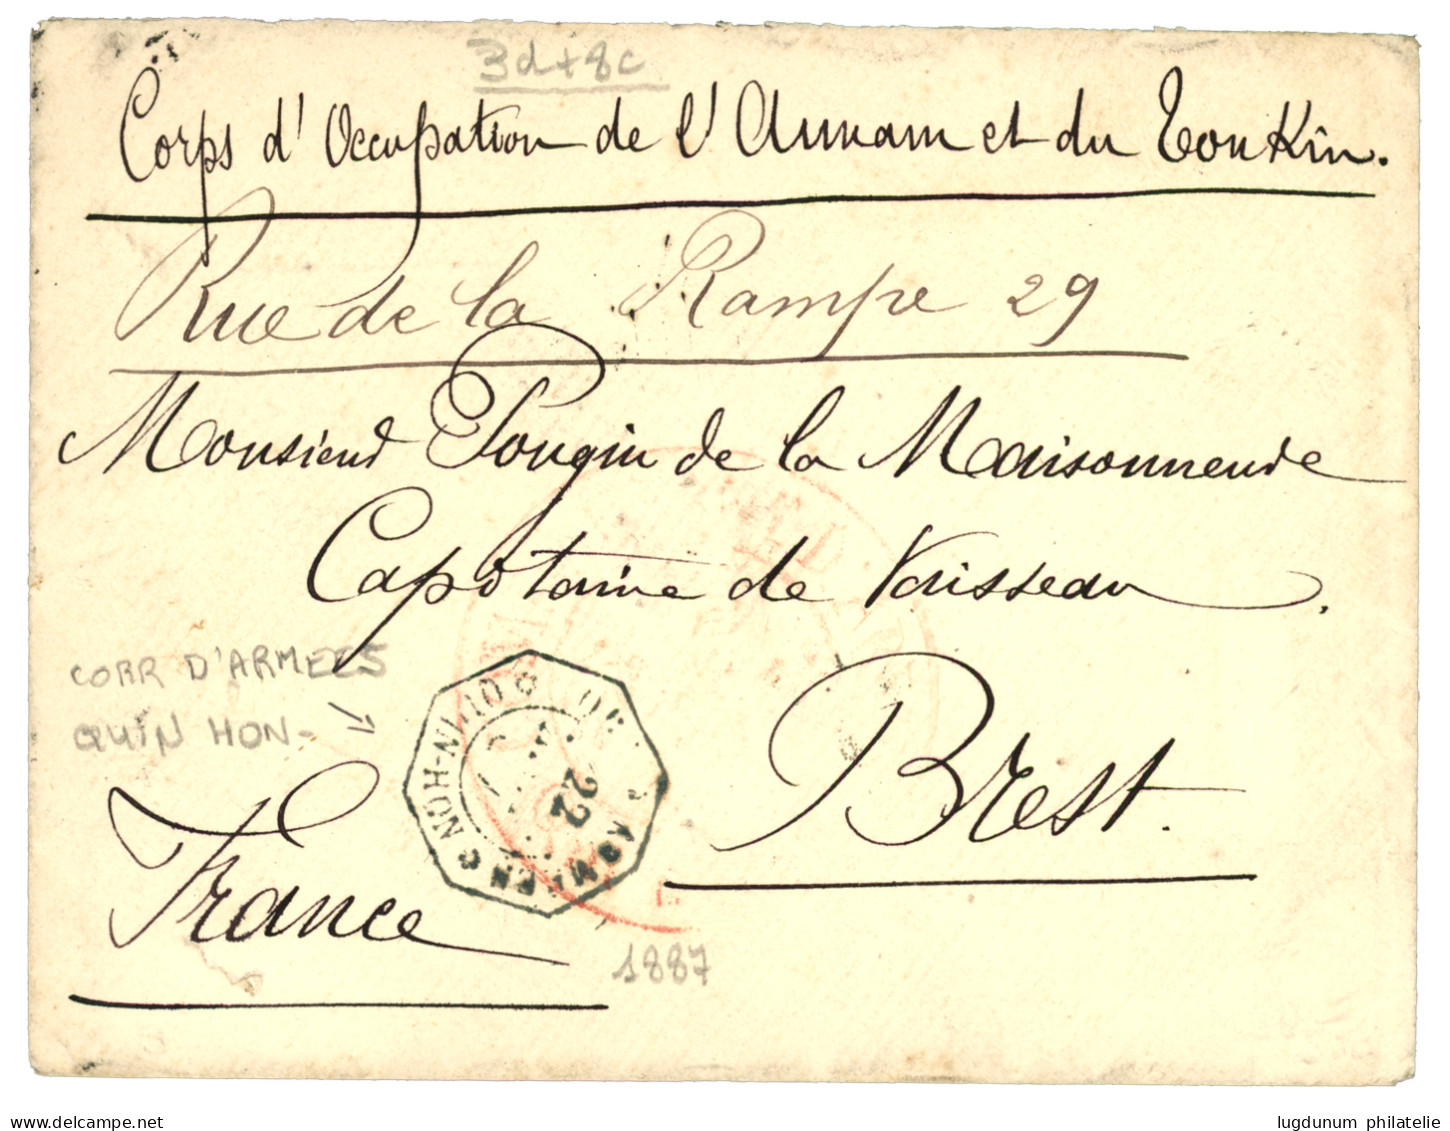 3d+8c
Corps d'Occupation de l'Annam et du Tonkin.
Rue de la Rampe 29
Monsieur Pougin de la Maisonneuve
Capitaine de Vaisseau.
CORR D'ARMEES
QUIN HON-
COR. D. ARMÉES
QUIN-HON
22
Brest.
France
1887
delcampe.net
lugdunum philatelie